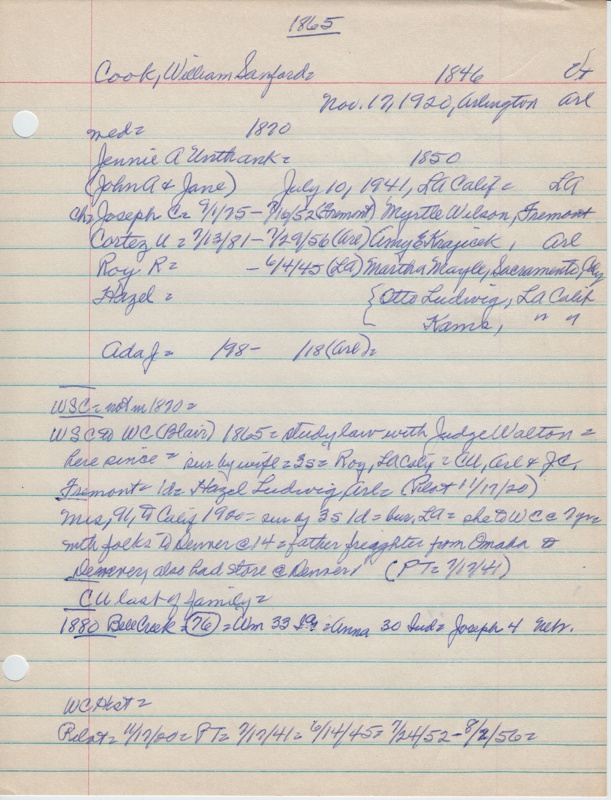 1865
Cook, William Sanford = 1846 Vt
Nov. 17, 1920, Arlington Arl
med = 1870
Jennie A Unthank = 1850
(John A & Jane) July 10, 1941, LA Calif = LA
Ch = Joseph C = 9/1/75 - 7/16/52 (Fremont) Myrtle Wilson, Fremont
Cortez U = 7/13/81 - 7/29/56 (Arl) Amy E Krajicek, Arl
Roy R = - 6/4/45 (LA) Martha Mayle, Sacramento, Caly
Hazel = { Otto Ludwig, LA Calif
Kams, " "
Ada J = 198 - 1/18 (Arl) =
WSC = not m 1870 =
WSC to WC (Blair) 1865 = study law with Judge Walton =
here since = sur by wife = 3s = Roy, LA Caly = CU, Arl & J C,
Fremont = 1d = Hazel Ludwig, Arl = (Pilot 11/17/20)
Mrs, U, to Calif 1900 = sur by 3s 1d = bur, LA = she to WC @ 7 yrs
with folks to Denver @ 14 = father freighter from Omaha to
Denver, also had store @ Denver (PT = 7/17/41)
CU last of family =
1880 Bell Creek = (76) = Wm 33 = Anna 30 Ind = Joseph 4 Nebr.
WC Hist =
Pilot = 11/17/20 = PT = 7/17/41 = 6/14/45 = 7/24/52 - 8/2/56 =